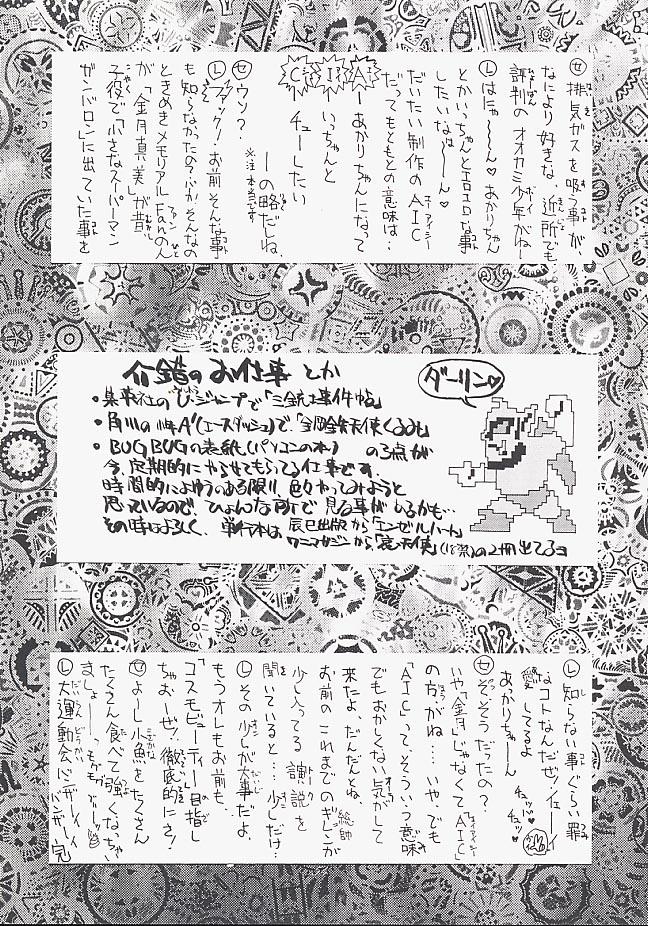 セ 排気ガスを吸う事が、
なにより好きな、近所でも
評判のオオカミ少年がねー
L はにゃ〜〜〜ん♡あかりちゃん
とかいっちゃんとエロエロな事
したいなぁ〜〜ん♡
だいたい制作のAIC
だってもともとの意味は…
A―あかりちゃんになって
I―いっちゃんと
C―チューしたい
―の略だしね、
※注 本当です
セ ウソ?
L ファック!お前そんな事
も知らなかったの?バカ!そんなの
ときめきメモリアルFanのん
が「金月真美」が昔
子役で「小さなスーパーマン
ガンバロン」に出ていた事を
介錯のお仕事とか
・集英社のV・ジャンプで「三銃士事件帖」
・角川の少年A'(エースダッシュ)で、「鋼鉄天使くるみ」
・BUG BUGの表紙(パソコンの本) の3点が
今、定期的にやらせてもらってる仕事です。
時間的によゆうのある限り、色々やってみようと
思っているので、ひょんな所で見る事がしるかも…
その時はよろしく、単行本は、辰巳出版から「エンゼルハート」
ワニマガジンから、「天使」(18禁)の2冊出てるヨ
ダーリン♡
L 知らない事ぐらい罪
なコトなんだぜッイェーイ
愛してるよ
あっかりちゃーん チュッ♡チュッ♡
セ そ、そうだったの?
いや「金月」じゃなくて「AIC」
の方がね…いや、でも
「AIC」って、そういう意味
でもおかしくない気がして
来たよ、だんだんとね
お前のこれまでのギレン総帥が
少し入ってる演説を
聞いていると…少しだけ…
L その少しが大事だよ、
もうオレもお前も、
「コスモビューティー」目指し
ちゃおーぜ!徹底的にさ!
セ よーし小魚をたくさん
たくさん食べて強くなっちゃい
ましょーーっ モグモグ
L 大運動会バンザーーイ
バンザーイ 完